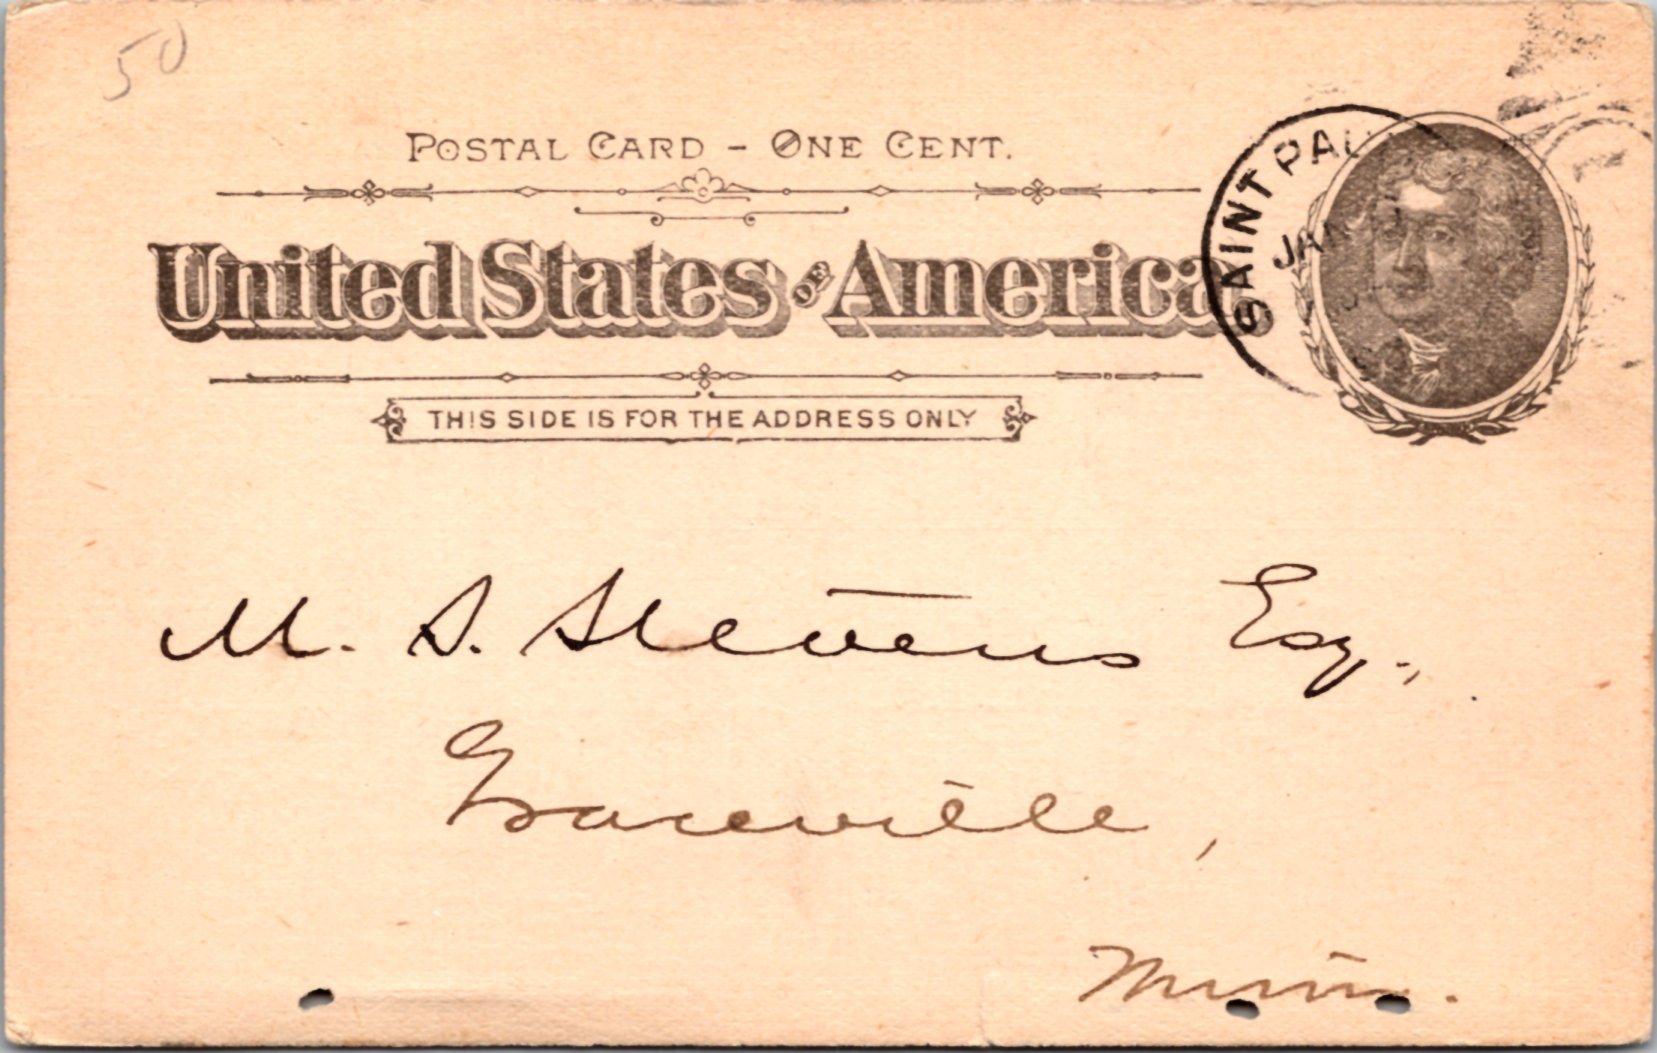 50
POSTAL CARD - ONE CENT.
SAINT PAUL
JAN
United States OF America
THIS SIDE IS FOR THE ADDRESS ONLY
M. S. Stevens Esq.,
Graceville,
Minn.